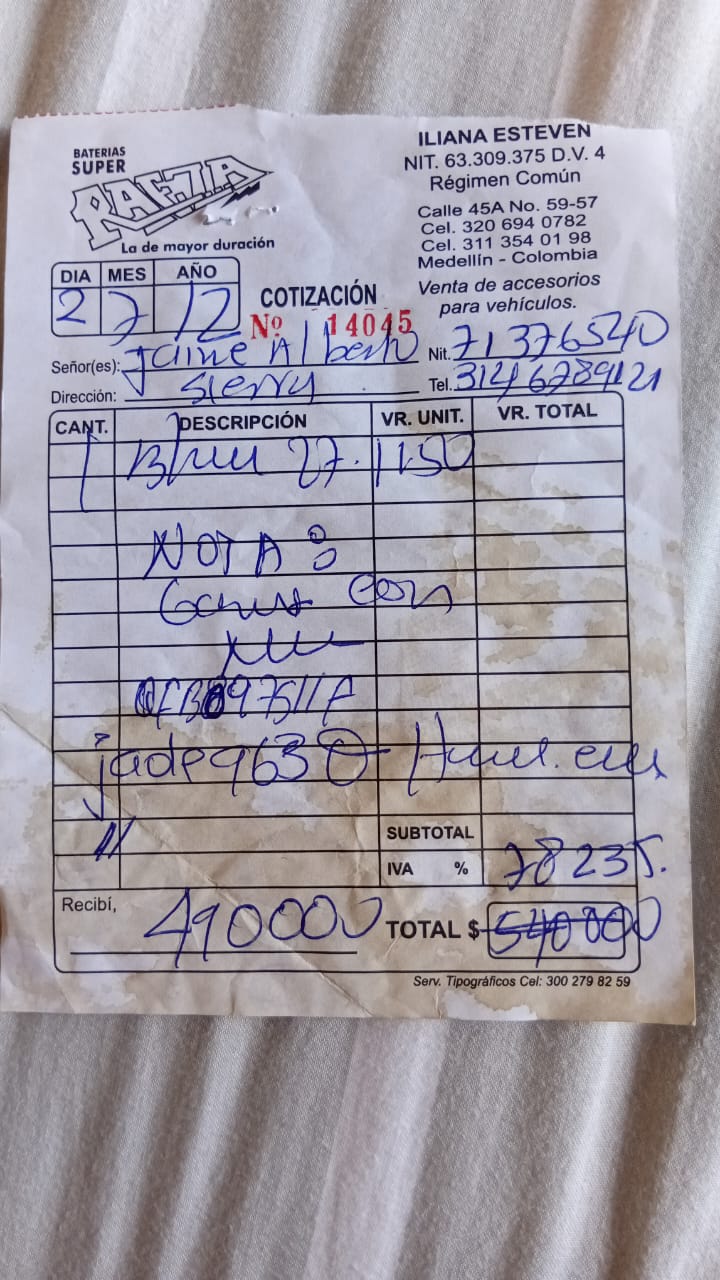 BATERIAS
SUPER
La de mayor duración
ILIANA ESTEVEN
NIT. 63.309.375 D.V. 4
Régimen Común
Calle 45A No. 59-57
Cel. 320 694 0782
Cel. 311 354 01 98
Medellín - Colombia
Venta de accesorios
para vehículos.
DIA MES AÑO
2 7 12
COTIZACIÓN
Nº 14045
Señor(es): Jaime Alberto Nit. 71376540
Dirección: Sierra Tel.
CANT. DESCRIPCIÓN VR. UNIT. VR. TOTAL
1 27. 1150
NOTA:
con
jade9630
SUBTOTAL
IVA % 78235.
Recibí, 490000 TOTAL $ 540000
Serv. Tipográficos Cel: 300 279 82 59